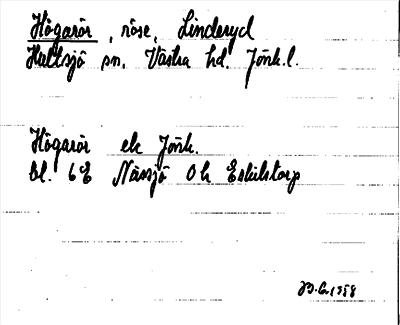 Högarör, röse, Linderyd
Hultsjö sn. Västra hd. Jönk.l.
Högarör ek Jönk.
bl. 6E Nässjö 0h Eskilstorp
B.G. 1958